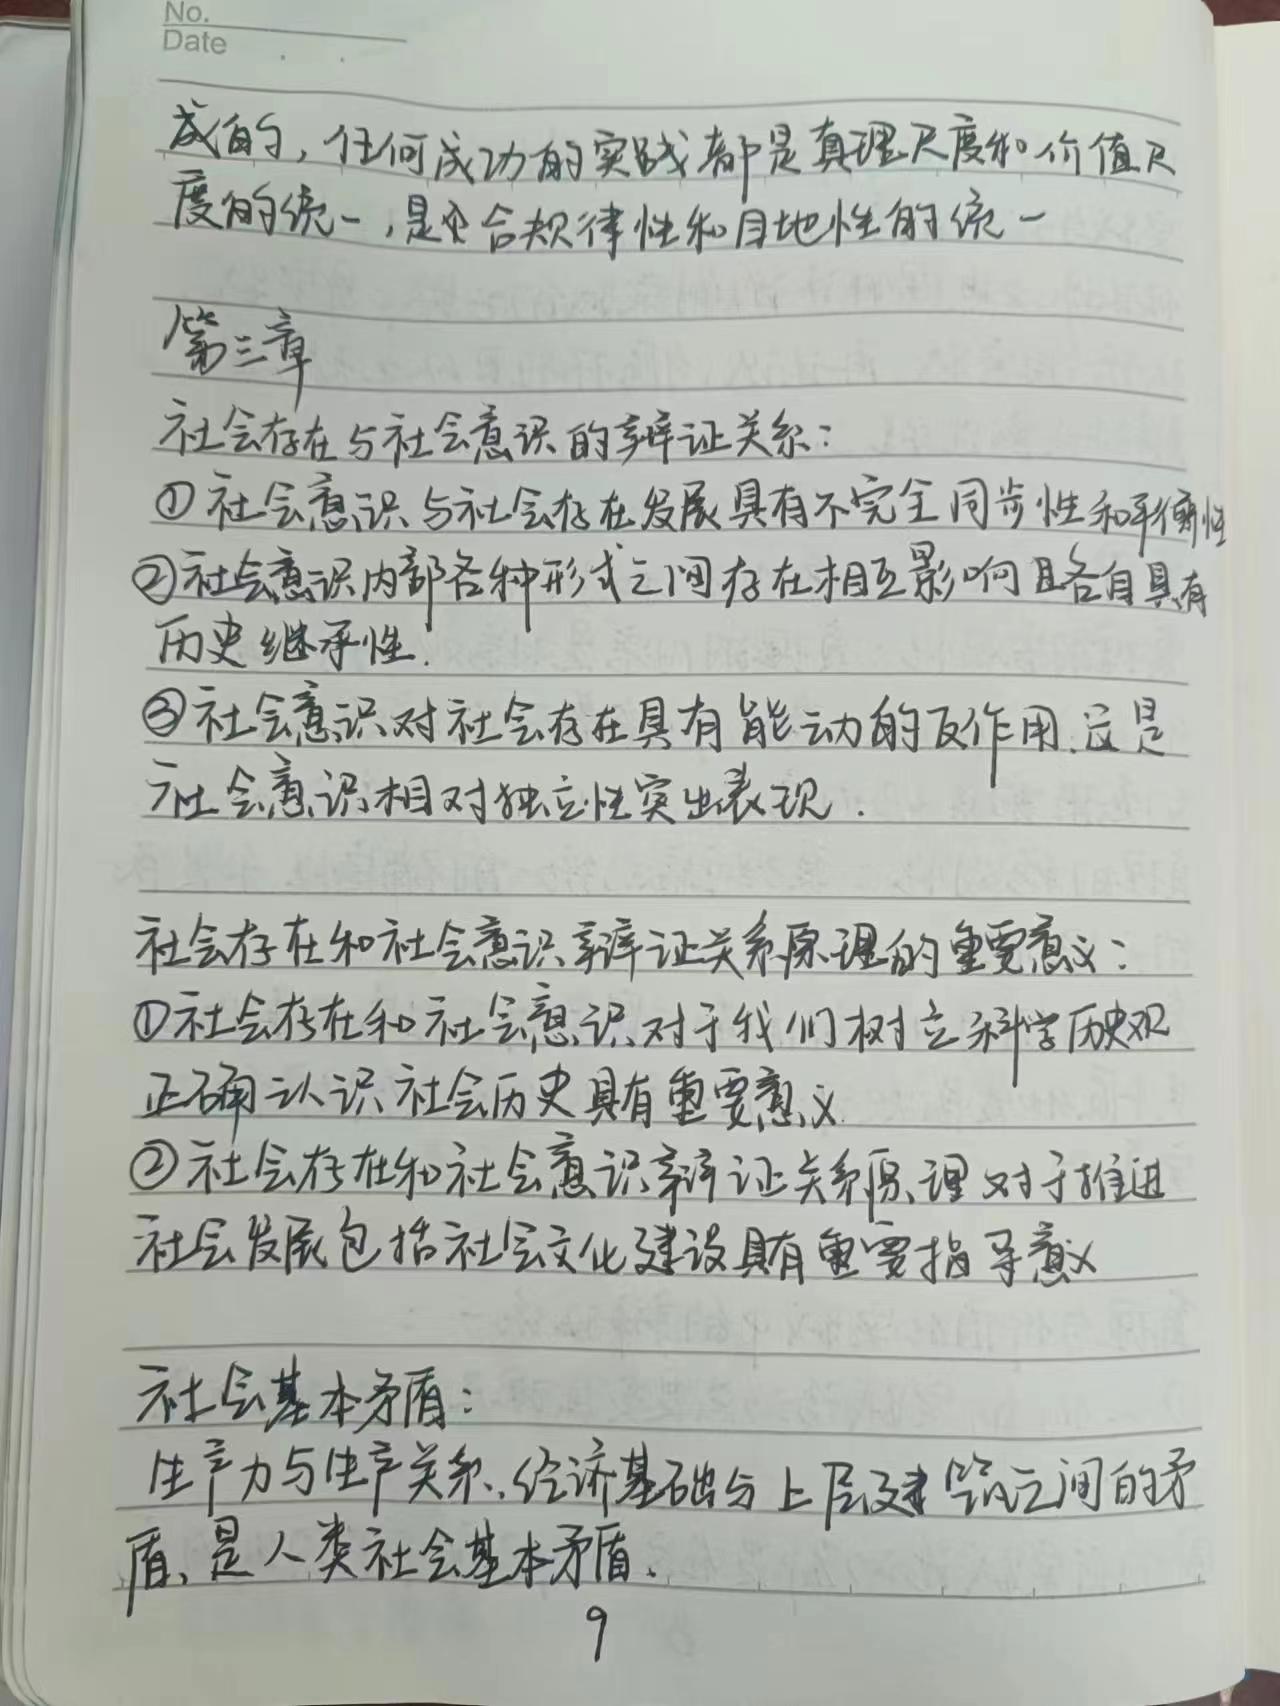 No.
Date
成的，任何成功的实践都是真理尺度和价值尺
度的统一，是合规律性和目地性的统一
第三章
社会存在与社会意识的辩证关系：
①社会意识与社会存在发展具有不完全同步性和平衡性
②社会意识内部各种形式之间存在相互影响且各自具有
历史继承性.
③社会意识对社会存在具有能动的反作用.这是
社会意识相对独立性突出表现.
社会存在和社会意识辩证关系原理的重要意义：
①社会存在和社会意识对于我们树立科学历史观
正确认识社会历史具有重要意义.
②社会存在和社会意识辩证关系原理对于推进
社会发展包括社会文化建设具有重要指导意义
社会基本矛盾：
生产力与生产关系、经济基础与上层建筑之间的矛
盾、是人类社会基本矛盾.
9